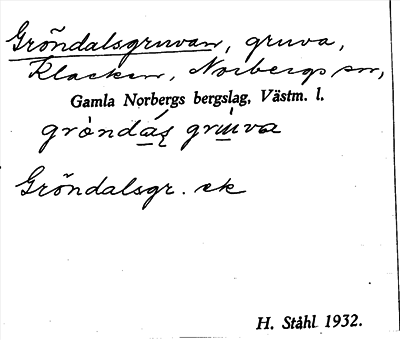 Gröndalsgruvan, gruva,
Klacken, Norbergs sn,
Gamla Norbergs bergslag, Västm. l.
gròndáʂ grùva
Gröndalsgr. ek
H. Ståhl 1932.